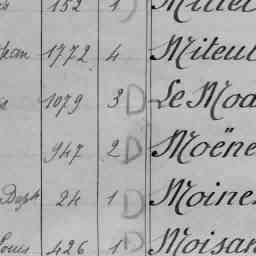 152 1
1772 4 Miteul
1079 3 D Le Moa
947 2 D Moëne
Daph 24 1 D Moine
Louis 426 1 D Moisan